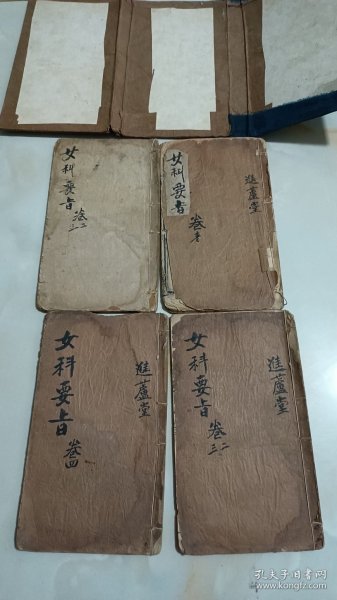 女科要旨
卷二三
女科要旨
卷
進蘆堂
女科要旨
卷四
進蘆堂
女科要旨
卷二三
進蘆堂
孔夫子旧书网
www.kongfz.com